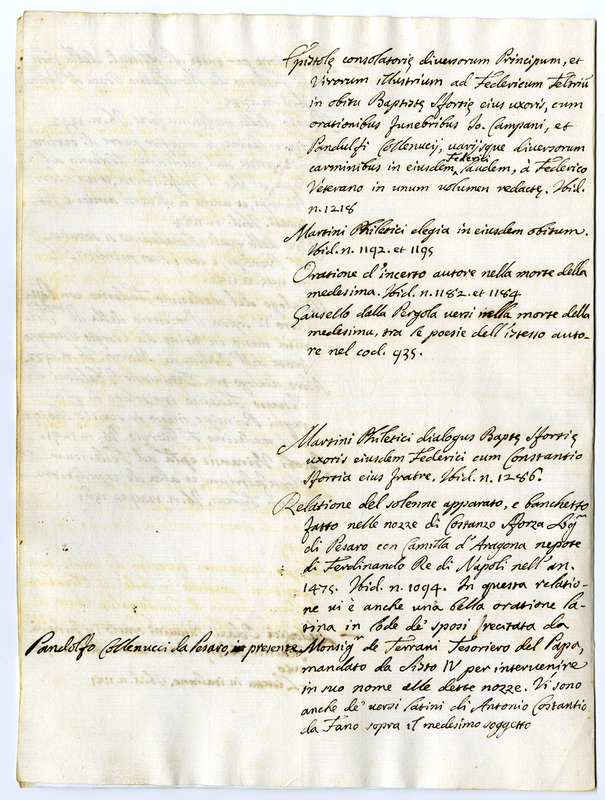 Epistolę consolatorię diversorum Principum, et
Virorum illustrium ad Federicum Feltriū
in obitu Baptistę Sfortię eius uxoris, cum
orationibus funebribus Io. Campani, et
Pandulfi Collenucij, varijsque diversorum
carminibus in eiusdem Federici laudem, à Federico
Veterano in unum volumen redactę. Ibid.
n. 1218
Martini Philetici elegia in eiusdem obitum.
Ibid. n. 1192. et 1195
Oratione d'incerto autore nella morte della
medesima. Ibid. n. 1182. et 1184
Gausello dalla Pergola versi nella morte della
medesima, tra le poesie dell'istesso auto-
re nel cod. 935.
Martini Philetici dialogus Baptę Sfortię
uxoris eiusdem Federici cum Constantio
Sfortia eius fratre, Ibid. n. 1286.
Relatione del solenne apparato, e banchetto
fatto nelle nozze di Costanzo Sforza Sigʳ
di Pesaro con Camilla d'Aragona nepote
di Ferdinando Re di Napoli nell'an.
1475. Ibid. n. 1094. In questa relatio-
ne vi è anche una bella oratione la-
tina in lode de' sposi recitata da
Pandolfo Collenucci da Pesaro, in presenza Monsigʳ de Terrani Tesoriero del Papa,
mandato da Sisto IV per intervenire
in suo nome alle dette nozze. Vi sono
anche de' versi latini di Antonio Costantio
da Fano sopra il medesimo soggetto